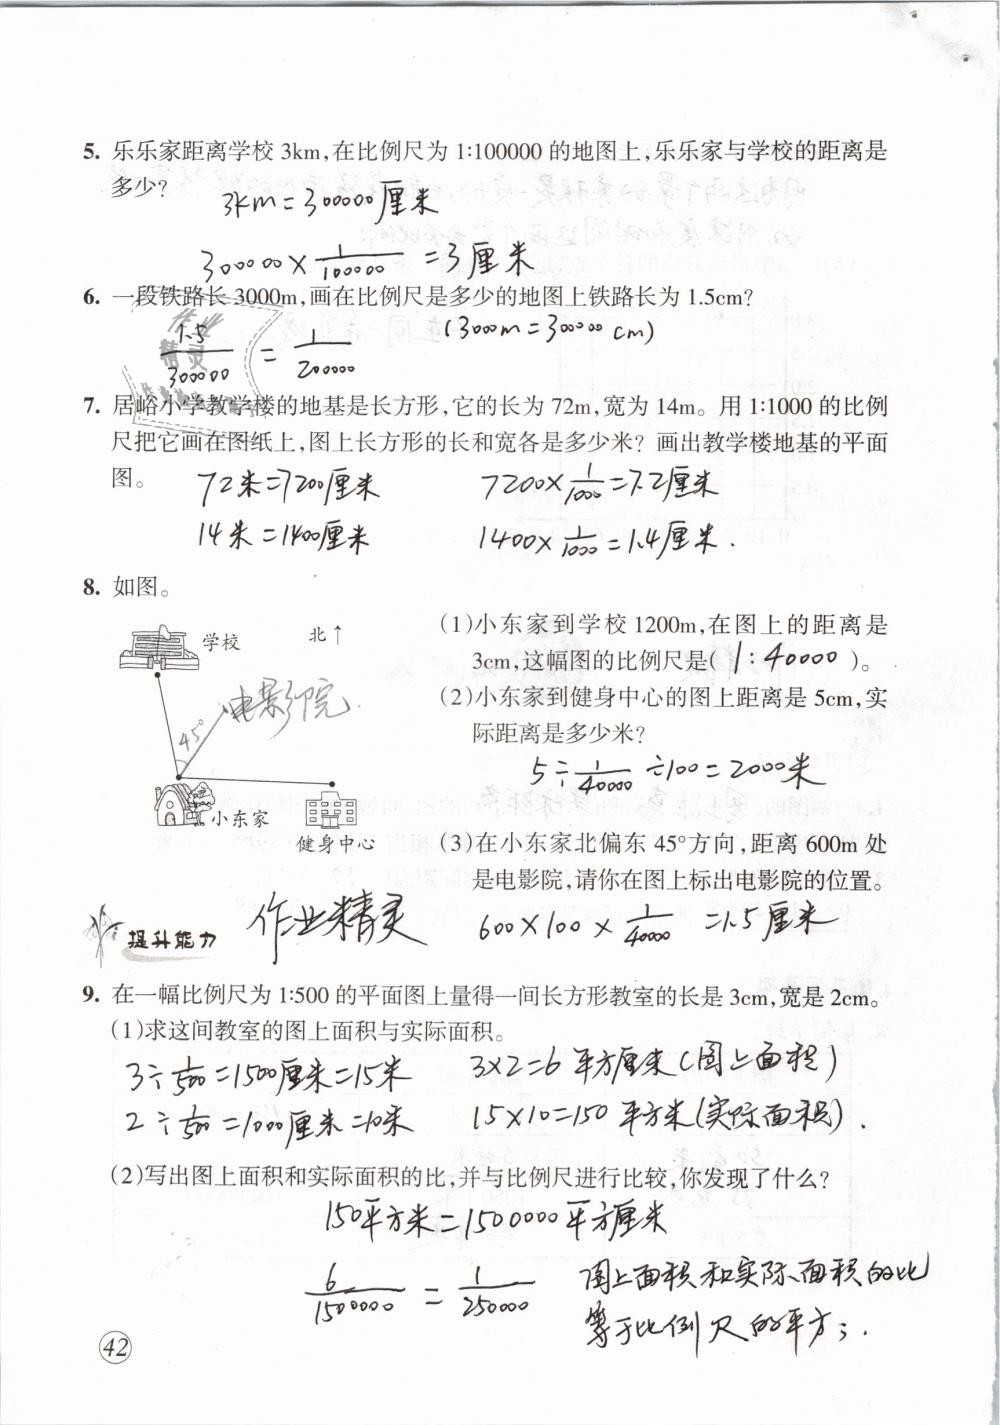 5. 乐乐家距离学校 3km,在比例尺为 1:100000 的地图上,乐乐家与学校的距离是
多少?
3km=300000厘米
300000×1/100000=3厘米
6. 一段铁路长 3000m,画在比例尺是多少的地图上铁路长为 1.5cm?
(3000m=300000cm)
1.5/300000=1/200000
作业
精灵
7. 居峪小学教学楼的地基是长方形,它的长为 72m,宽为 14m。用 1:1000 的比例
尺把它画在图纸上,图上长方形的长和宽各是多少米? 画出教学楼地基的平面
图。
72米=7200厘米 7200×1/1000=7.2厘米
14米=1400厘米 1400×1/1000=1.4厘米.
8. 如图。
学校
北↑
电影院
45°
小东家
健身中心
(1)小东家到学校 1200m,在图上的距离是
3cm,这幅图的比例尺是( 1:40000 )。
(2)小东家到健身中心的图上距离是 5cm,实
际距离是多少米?
5÷1/40000÷100=2000米
(3)在小东家北偏东 45°方向,距离 600m 处
是电影院,请你在图上标出电影院的位置。
600×100×1/40000=1.5厘米
提升能力
作业精灵
9. 在一幅比例尺为 1:500 的平面图上量得一间长方形教室的长是 3cm,宽是 2cm。
(1)求这间教室的图上面积与实际面积。
3÷1/500=1500厘米=15米 3×2=6平方厘米(图上面积)
2÷1/500=1000厘米=10米 15×10=150平方米(实际面积).
(2)写出图上面积和实际面积的比,并与比例尺进行比较,你发现了什么?
150平方米=1500000平方厘米
6/1500000=1/250000 图上面积和实际面积的比
等于比例尺的平方;.
42